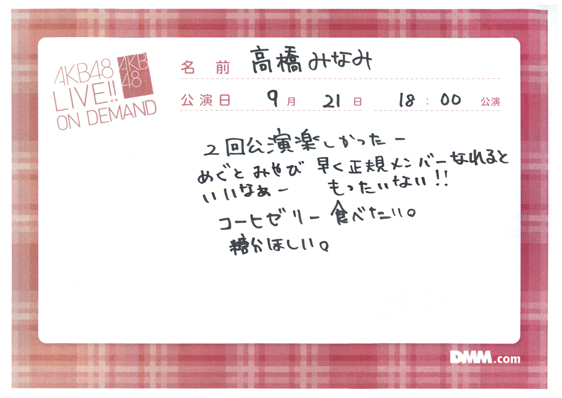 AKB48
LIVE!!
ON DEMAND
AKB
48
名前 高橋みなみ
公演日 9月 21日 18:00 公演
2回公演楽しかったー
めぐとみやび 早く正規メンバーなれると
いいなぁー もったいない!!
コーヒゼリー食べたい。
糖分ほしい。
DMM.com